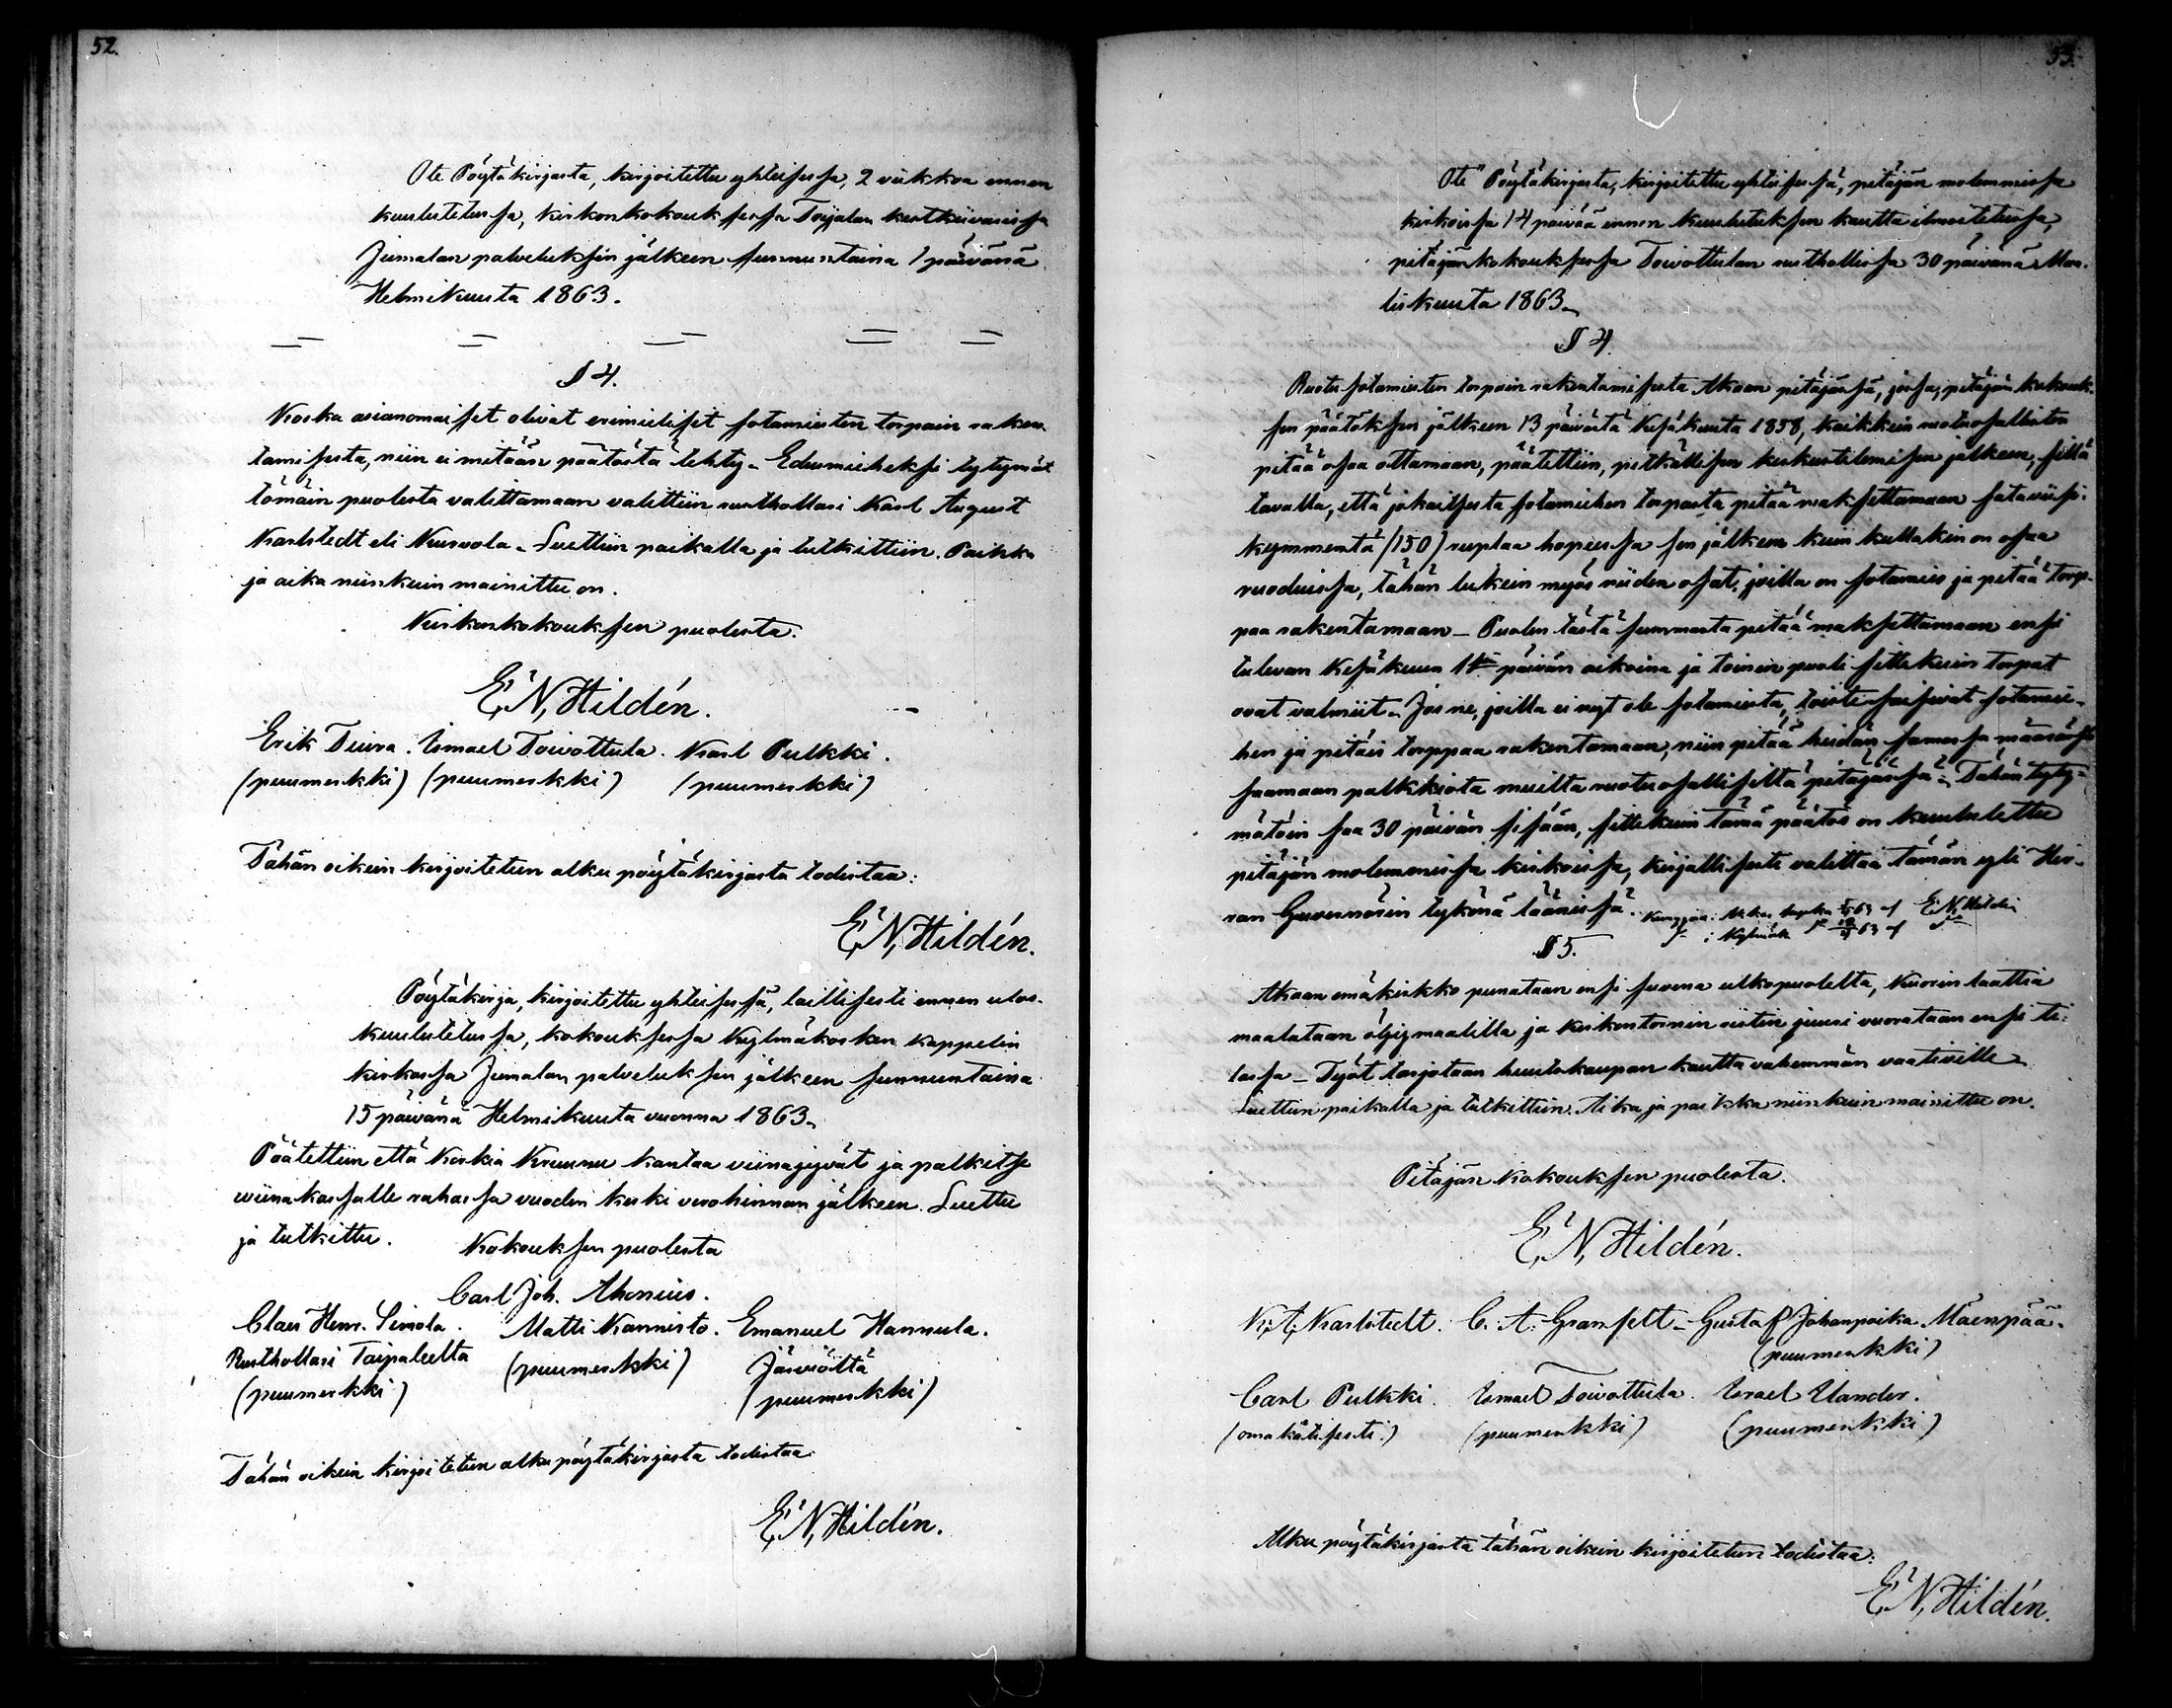 52.
Ote Pöytäkirjasta, kirjoitettu yhteisessa, 2 viikkoa ennen
kuulutetussa, kirkonkokouksessa Toijalan kestkiivarissa
Jumalan palveluksen jälkeen sunnuntaina 1 päivänä
Helmikuuta 1863.
§ 4.
Koska asianomaiset olivat erimieliset sotamiesten torpain raken
tamisesta, niin ei mitään päätöstä tehty. Edesmieheksi tytymät
tömäin puolesta valittamaan valittiin rusthollari Karl August
Karlstedt eli Kurvola. Luettiin paikalla ja tutkittiin. Paikka
ja aika niinkuin mainittu on.
Kirkonkokouksen puolesta.
E. N. Hildén.
Erik Tiura. Ismael Toivottula. Karl Pulkki.
(puumerkki) (puumerkki) (puumerkki)
Tähän oikein kirjoitetun alku pöytäkirjasta todistaa:
E. N. Hildén.
Pöytäkirja, kirjoitettu yhteisessä, laillisesti ennen ulos-
kuulutetussa, kokouksessa Kylmäkosken kappelin
kirkossa Jumalan palveluksen jälkeen sunnuntaina
15 päivänä Helmikuuta vuonna 1863.
Päätettiin että Korkia Kruunu kantaa viinajyvät ja palkitse
wiinakassalle rahassa vuoden keski verohinnan jälkeen. Luettu
ja tutkittu.
Kokouksen puolesta
Carl Joh. Ahonius.
Claes Henr. Simola. Matti Kannisto. Emanuel Hannula.
Rusthollari Taipaleelta (puumerkki) Järviöltä
(puumerkki) (puumerkki)
Tähän oikein kirjoitetun alku pöytäkirjasta todistaa
E. N. Hildén.
53.
Ote Pöytäkirjasta, kirjoitettu yhteisessä, pitäjän molemmissa
kirkoissa 14 päivää ennen kuulutuksen kautta ilmoitetussa,
pitäjänkokouksessa Toivottulan rusthollissa 30 päivänä Maa-
liskuuta 1863.
§ 4.
Ruotu sotamiesten torpain rakentamisesta Akaan pitäjässä, jossa, pitäjän kokouk-
sen päätöksen jälkeen 13 päivästä Kesäkuuta 1858, kaikkein ruotuosallisten
pitää osaa ottamaan, päätettiin, pitkällisen keskustelemisen jälkeen, sillä
tavalla, että jokaisesta sotamiehen torpasta pitää maksettamaan sataviisi-
kymmentä (150) ruplaa hopeessa sen jälkeen kuin kullakin on osaa
ruoduissa, tähän lukein myös niiden osat, joilla on sotamies ja pitää torp-
paa rakentamaan. Puolen tästä summasta pitää maksettamaan ensi
tulevan Kesäkuun 1:n päivän aikoina ja toinen puoli sittekuin torpat
ovat valmiit. Jos ne, joilla ei nyt ole sotamiestä, toiste saisivat sotamie-
hen ja pitäis torppaa rakentamaan, niin pitää heidän samassa määrässä
saamaan palkkiota muilta ruotuosallisilta pitäjässä. Tähän tyty-
mätöin saa 30 päivän sisään, sittekuin tämä päätös on kuulutettu
pitäjän molemmissa kirkoissa, kirjallisesti valittaa tämän yli Her-
ran Guvernörin tykönä läänissä. E. N. Hildén
§ 5.
Akaan emäkirkko punataan ensi suvena ulkopuolelta, Kuorin laattia
maalataan öljymaalilla ja kirkontornin ristin juuri vuorataan ensi ti-
lassa. Työt tarjotaan huutokaupan kautta vähemmän vaativille.
Luettiin paikalla ja tutkittiin. Aika ja paikka niinkuin mainittu on.
Pitäjän Kokouksen puolesta.
E. N. Hildén.
K. A. Karlstedt. C. A. Granfelt. Gustaf Johanpoika Mäenpää.
(puumerkki)
Carl Pulkki. Ismael Toivottula. Israel Uander.
(omakätisesti.) (puumerkki) (puumerkki)
Alku pöytäkirjasta tähän oikein kirjoitetun todistaa:
E. N. Hildén.